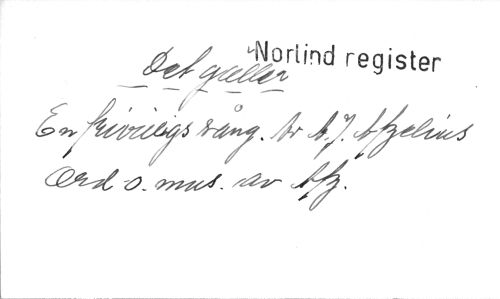 Norlind register
Det gäller
En frivilligs sång. Av A. J. Afzelius
Ord o. mus. av Afz.